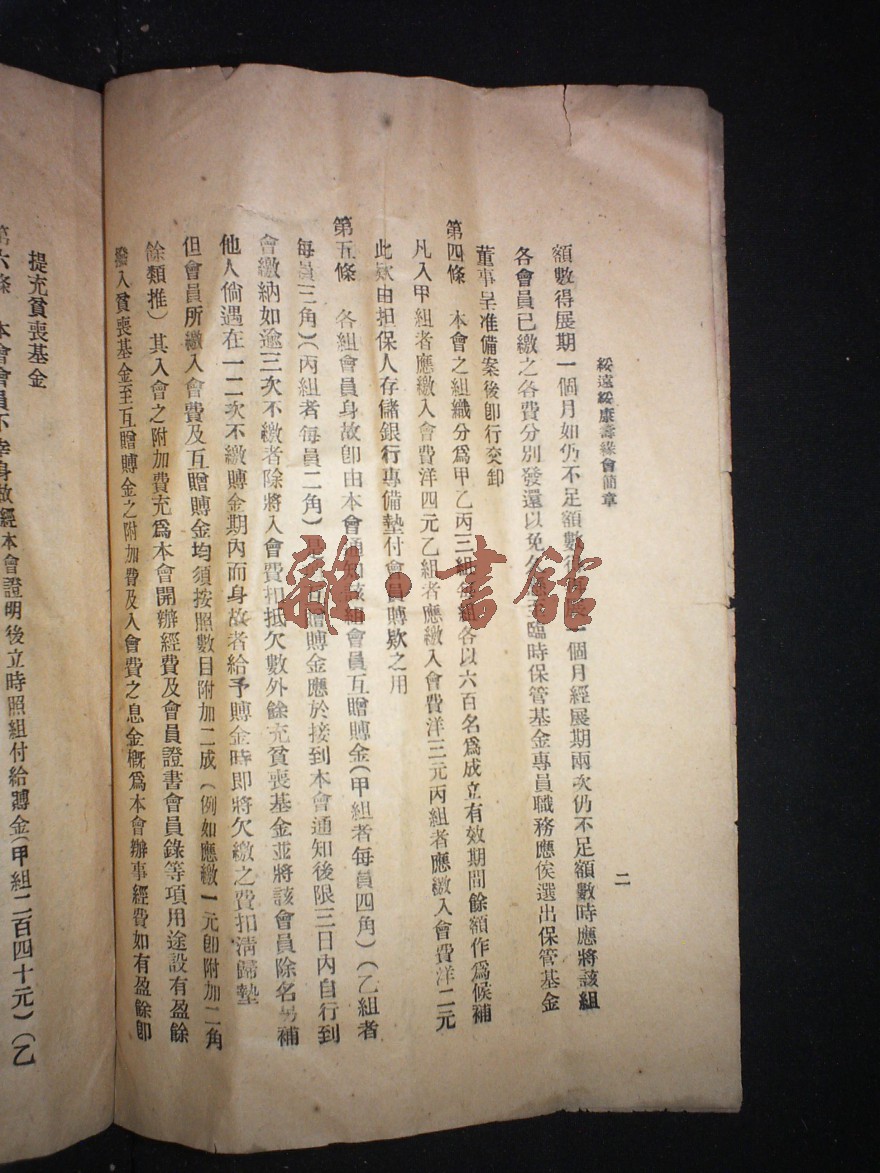 綏遠綏康壽緣會簡章
二
額數得展期一個月如仍不足額數得
個月經展期兩次仍不足額數時應將該組
各會員已繳之各費分別發還以免
臨時保管基金專員職務應俟選出保管基金
董事呈准備案後卽行交卸
第四條 本會之組織分爲甲乙丙三組每組各以六百名爲成立有效期間餘額作爲候補
凡入甲組者應繳入會費洋四元乙組者應繳入會費洋三元丙組者應繳入會費洋二元
此欵由担保人存儲銀行專備墊付會員賻欵之用
第五條 各組會員身故卽由本會通知該組會員互贈賻金(甲組者每員四角)(乙組者
每員三角)(丙組者每員二角)
贈賻金應於接到本會通知後限三日內自行到
會繳納如逾三次不繳者除將入會費扣抵欠數外餘充貧喪基金並將該會員除名另補
他人倘遇在一二次不繳賻金期內而身故者給予賻金時即將欠繳之費扣淸歸墊
但會員所繳入會費及互贈賻金均須按照數目附加二成(例如應繳一元卽附加二角
餘類推)其入會之附加費充爲本會開辦經費及會員證書會員錄等項用途設有盈餘
撥入貧喪基金至互贈賻金之附加費及入會費之息金槪爲本會辦事經費如有盈餘卽
提充貧喪基金
第六條 本會會員不幸身故經本會證明後立時照組付給賻金(甲組二百四十元)(乙
雜·書館